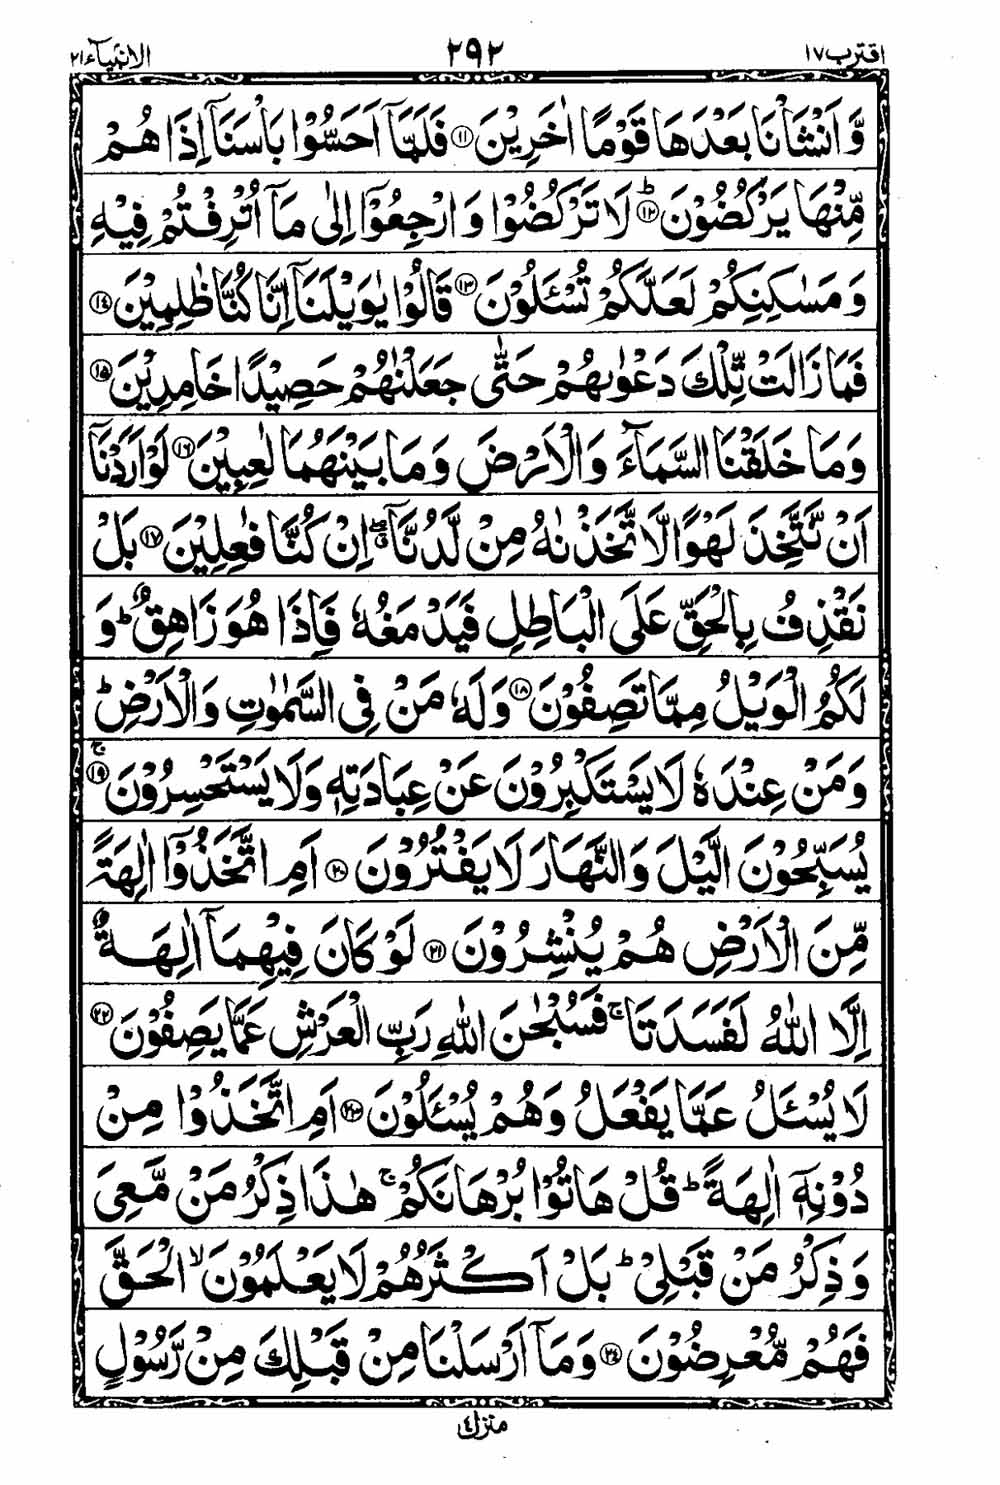 اقترب ١٧ ٢٩٢ الانبیآء ٢١
وَّ اَنْشَاْنَا بَعْدَهَا قَوْمًا اٰخَرِیْنَ ﴿١١﴾ فَلَمَّاۤ اَحَسُّوْا بَاْسَنَاۤ اِذَا هُمْ
مِّنْهَا یَرْكُضُوْنَ ؕ﴿١٢﴾ لَا تَرْكُضُوْا وَ ارْجِعُوْۤا اِلٰی مَاۤ اُتْرِفْتُمْ فِیْهِ
وَ مَسٰكِنِكُمْ لَعَلَّكُمْ تُسْـَٔلُوْنَ ﴿١٣﴾ قَالُوْا یٰوَیْلَنَاۤ اِنَّا كُنَّا ظٰلِمِیْنَ ﴿١٤﴾
فَمَا زَالَتْ تِّلْكَ دَعْوٰىهُمْ حَتّٰی جَعَلْنٰهُمْ حَصِیْدًا خَامِدِیْنَ ﴿١٥﴾
وَ مَا خَلَقْنَا السَّمَآءَ وَ الْاَرْضَ وَ مَا بَیْنَهُمَا لٰعِبِیْنَ ﴿١٦﴾ لَوْ اَرَدْنَاۤ
اَنْ نَّتَّخِذَ لَهْوًا لَّاتَّخَذْنٰهُ مِنْ لَّدُنَّاۤ ۖۗ اِنْ كُنَّا فٰعِلِیْنَ ﴿١٧﴾ بَلْ
نَقْذِفُ بِالْحَقِّ عَلَی الْبَاطِلِ فَیَدْمَغُهٗ فَاِذَا هُوَ زَاهِقٌ ؕ وَ
لَكُمُ الْوَیْلُ مِمَّا تَصِفُوْنَ ﴿١٨﴾ وَ لَهٗ مَنْ فِی السَّمٰوٰتِ وَ الْاَرْضِ ؕ
وَ مَنْ عِنْدَهٗ لَا یَسْتَكْبِرُوْنَ عَنْ عِبَادَتِهٖ وَ لَا یَسْتَحْسِرُوْنَ ۚ﴿١٩﴾
یُسَبِّحُوْنَ الَّیْلَ وَ النَّهَارَ لَا یَفْتُرُوْنَ ﴿٢٠﴾ اَمِ اتَّخَذُوْۤا اٰلِهَةً
مِّنَ الْاَرْضِ هُمْ یُنْشِرُوْنَ ﴿٢١﴾ لَوْ كَانَ فِیْهِمَاۤ اٰلِهَةٌ
اِلَّا اللّٰهُ لَفَسَدَتَا ۚ فَسُبْحٰنَ اللّٰهِ رَبِّ الْعَرْشِ عَمَّا یَصِفُوْنَ ﴿٢٢﴾
لَا یُسْـَٔلُ عَمَّا یَفْعَلُ وَ هُمْ یُسْـَٔلُوْنَ ﴿٢٣﴾ اَمِ اتَّخَذُوْا مِنْ
دُوْنِهٖۤ اٰلِهَةً ؕ قُلْ هَاتُوْا بُرْهَانَكُمْ ۚ هٰذَا ذِكْرُ مَنْ مَّعِیَ
وَ ذِكْرُ مَنْ قَبْلِیْ ؕ بَلْ اَكْثَرُهُمْ لَا یَعْلَمُوْنَ ۙ الْحَقَّ
فَهُمْ مُّعْرِضُوْنَ ﴿٢٤﴾ وَ مَاۤ اَرْسَلْنَا مِنْ قَبْلِكَ مِنْ رَّسُوْلٍ
منزل ٤